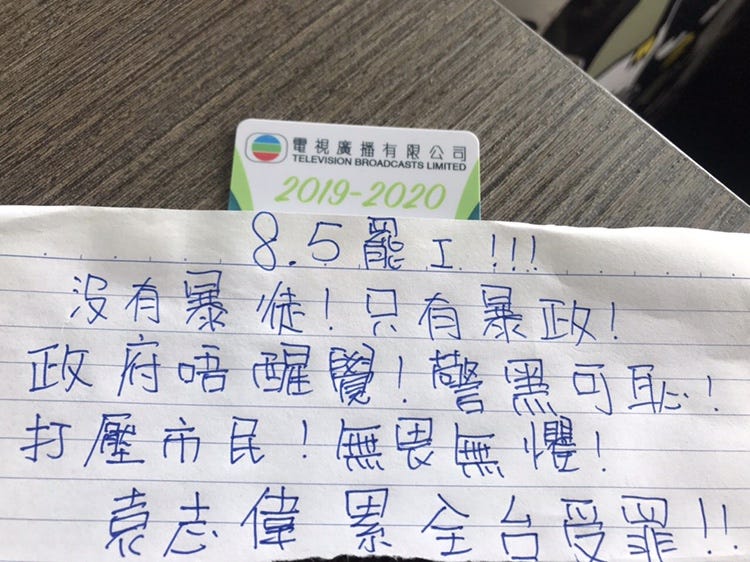 電視廣播有限公司
TELEVISION BROADCASTS LIMITED
2019-2020
8.5 罷工!!!
没有暴徒!只有暴政!
政府唔醒覺!警黑可恥!
打壓市民!無畏無懼!
袁志偉累全台受罪!!